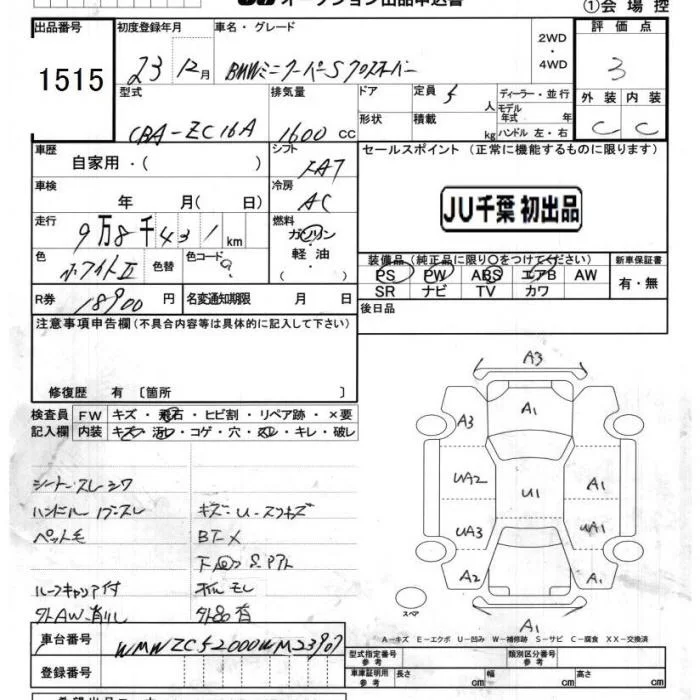 オークション出品申込書
①会場控
出品番号 初度登録年月 車名・グレード 評価点
1515
23 12月 BMWミニクーパーSクロスオーバー
2WD・4WD
3
型式 排気量 ドア 定員 5人 ディーラー・並行 外装 内装
CBA-ZC16A 1600cc
形状 積載 kg モデル年式 年 ハンドル 左・右
C C
車歴 自家用・( ) シフト FAT セールスポイント(正常に機能するものに限ります)
車検 年 月( 日) 冷房 AC
JU千葉 初出品
走行 9万8千431km 燃料 ガソリン・軽油( ・ )
色 ホワイトII 色替 色コード ?
装備品(純正品に限り○をつけてください) 新車保証書
PS PW ABS エアB AW 有・無
SR ナビ TV カワ
R券 18900円 名変通知期限 月 日
後日品
注意事項申告欄(不具合内容等は具体的に記入して下さい)
修復歴 有〔箇所 〕
検査員記入欄 FW キズ・飛石・ヒビ割・リペア跡・×要
内装 キズ・汚レ・コゲ・穴・スレ・キレ・破レ
シートスレシワ
ハンドル
キズ
ペット毛
ルーフキャリア付
A3
A1
A3
UA2 U1 A1
UA3 UA1
A2 A1
スペア
A1
A-キズ E-エクボ U-凹み W-補修跡 S-サビ C-腐食 XX-交換済
車台番号 WMWZC52000WM23907
登録番号
型式指定番号 参考 類別区分番号 参考
車庫証明用 参考 長さ cm 幅 cm 高さ cm